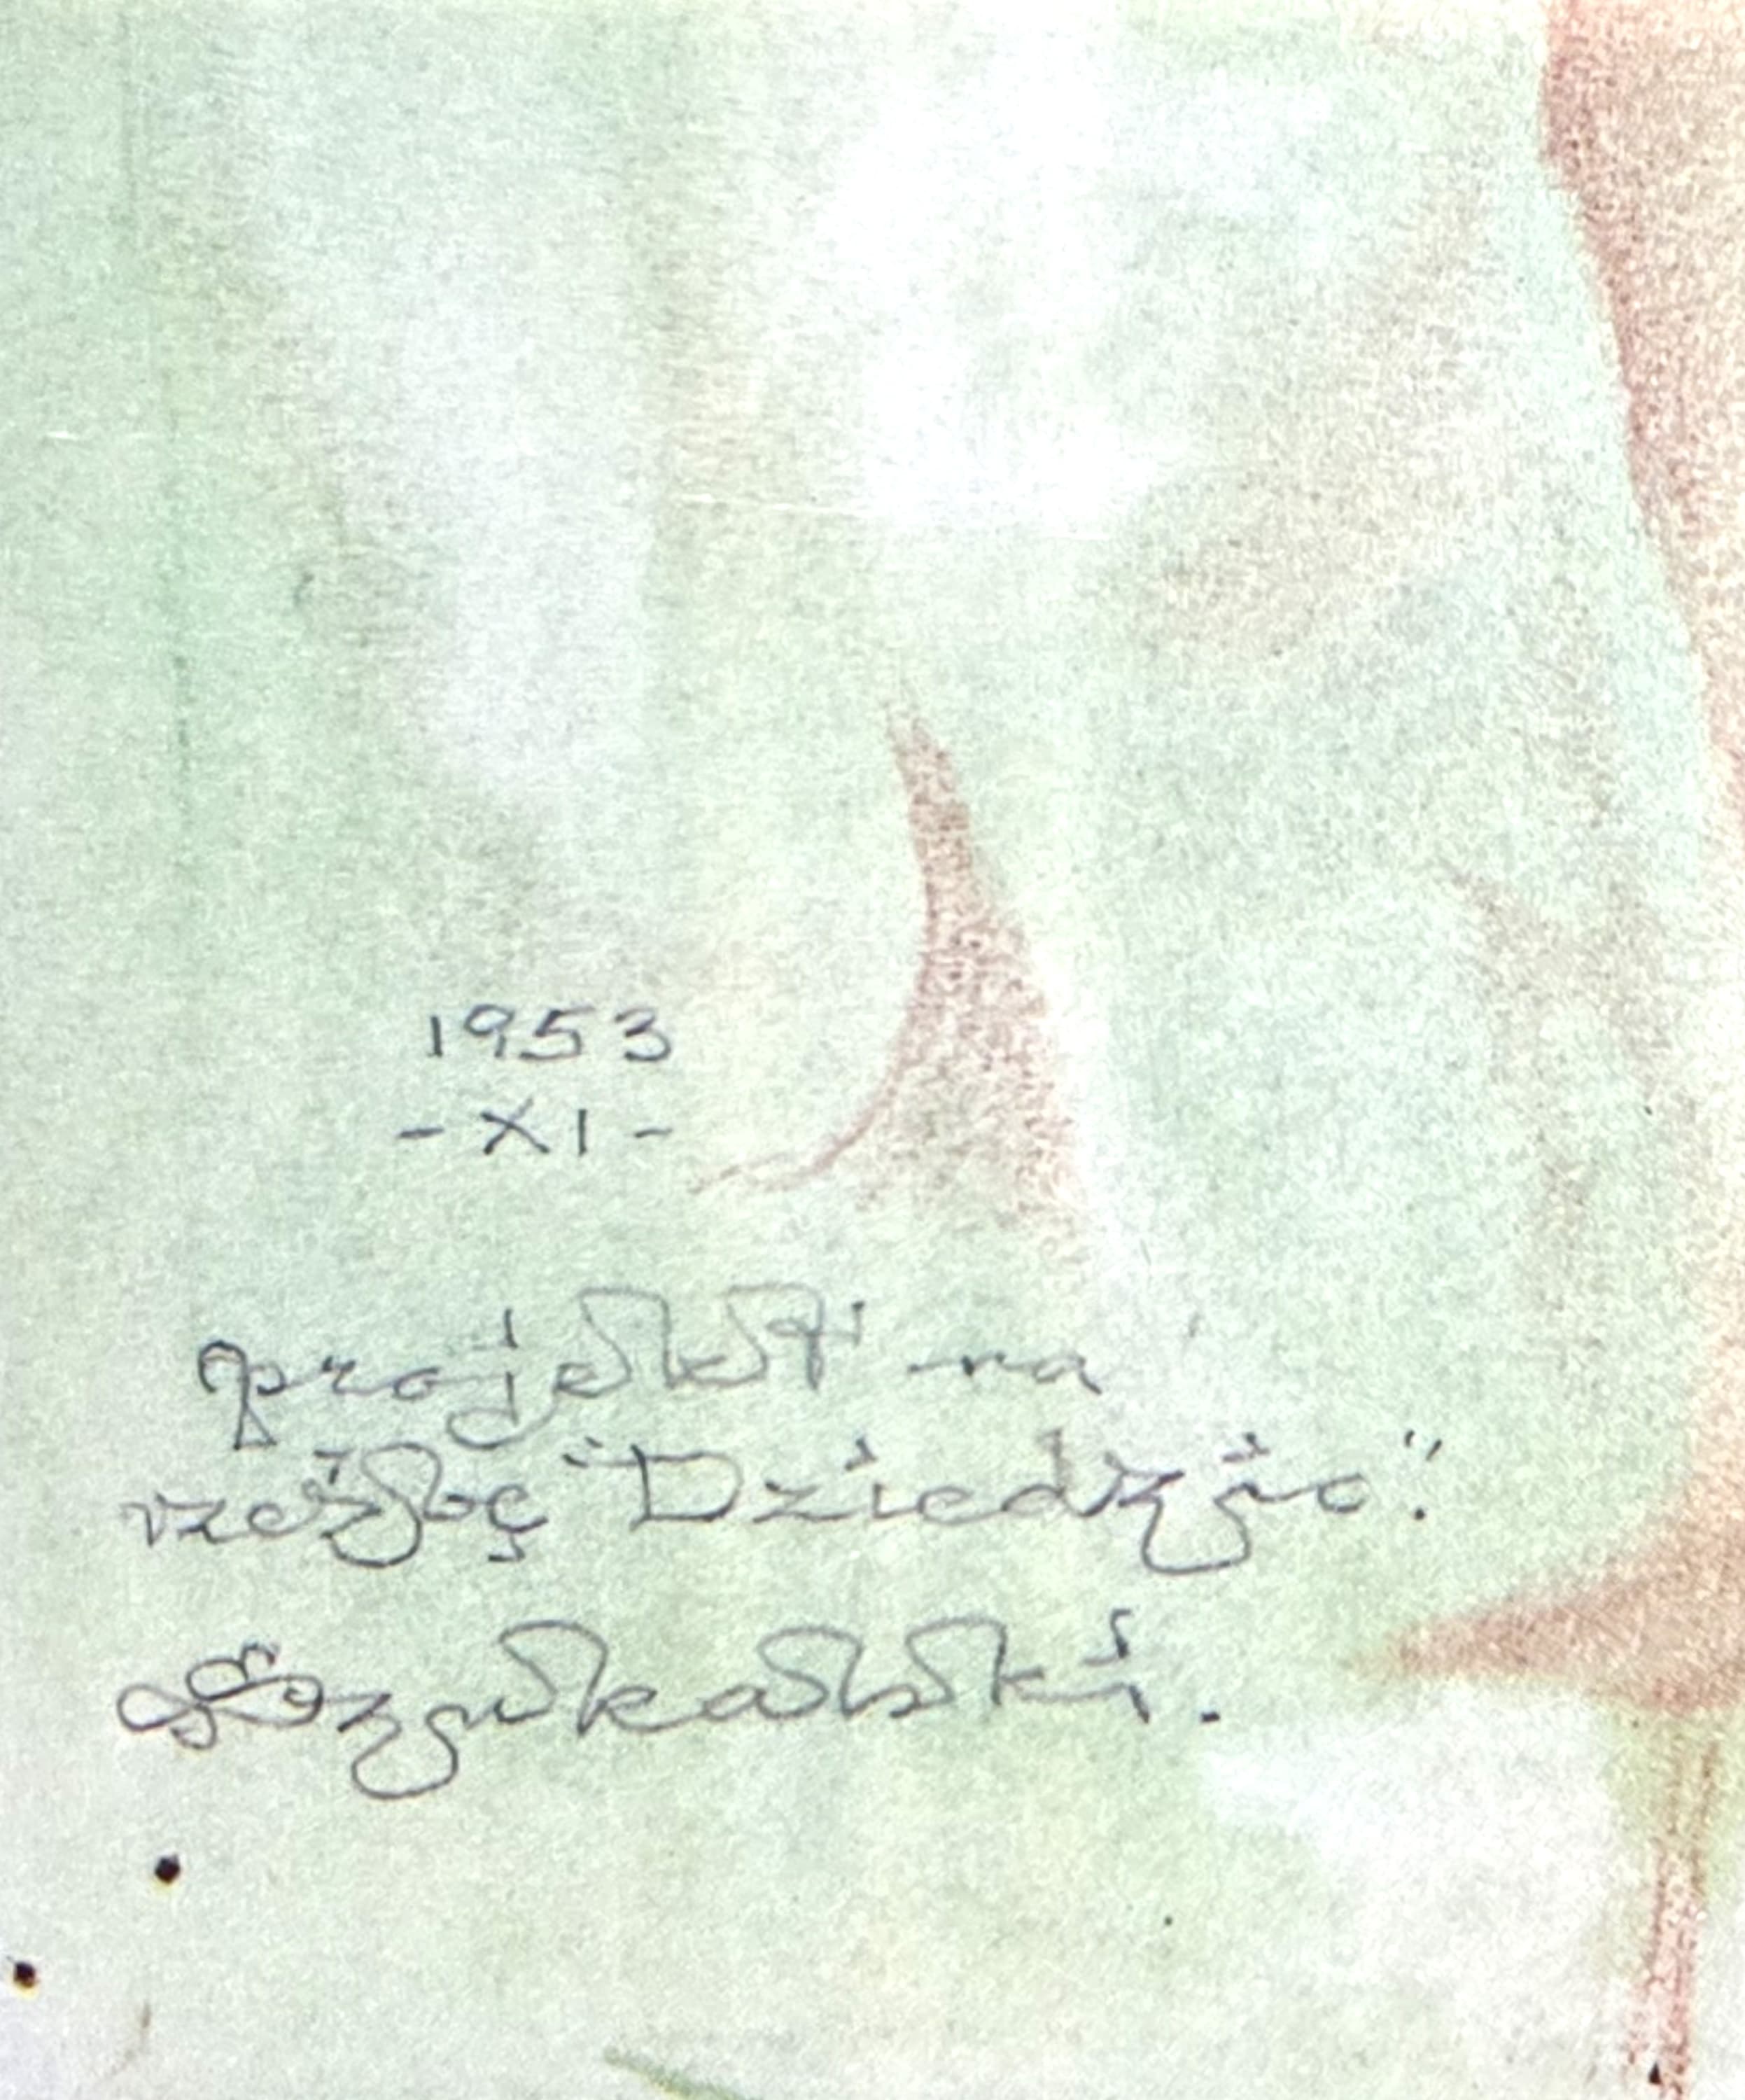 1953
- XI -
projekt na
rzeźbę "Dziedzic".
Szukalski.